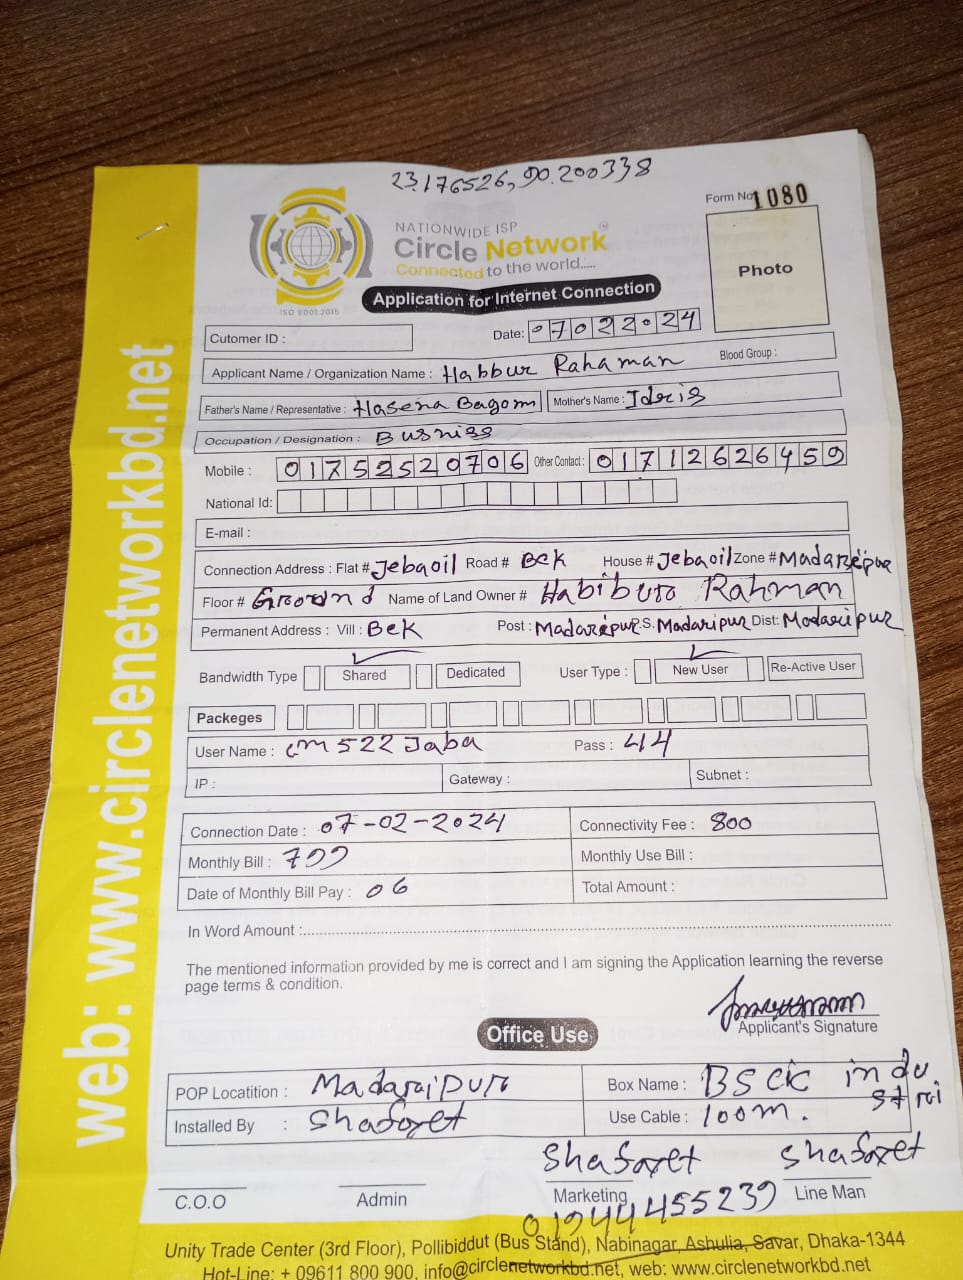 23.176526, 90.200338
Form No 1080
NATIONWIDE ISP
Circle Network
Connected to the world.....
ISO 9001:2015
Photo
Application for Internet Connection
Cutomer ID :
Date: 07022024
Applicant Name / Organization Name : Habbur Rahaman Blood Group :
Father's Name / Representative : Hasena Bagom Mother's Name : Idris
Occupation / Designation : Busniss
Mobile : 01752520706 Other Contact : 01712626459
National Id:
E-mail :
Connection Address : Flat # Jebaoil Road # Bck House # Jebaoil Zone # Madaripur
Floor # Ground Name of Land Owner # Habibura Rahman
Permanent Address : Vill : Bck Post : Madaripur P.S. Madaripur Dist: Madaripur
Bandwidth Type Shared Dedicated User Type : New User Re-Active User
Packeges
User Name : cm522 Jaba Pass : 414
IP : Gateway : Subnet :
Connection Date : 07-02-2024 Connectivity Fee : 800
Monthly Bill : 799 Monthly Use Bill :
Date of Monthly Bill Pay : 06 Total Amount :
In Word Amount :
The mentioned information provided by me is correct and I am signing the Application learning the reverse
page terms & condition.
Applicant's Signature
Office Use
POP Locatition : Madaraipur Box Name : BScic indu strai
Installed By : Shaforet Use Cable : 100m.
Shaforet Shaforet
C.O.O Admin Marketing Line Man
01944455239
Unity Trade Center (3rd Floor), Pollibiddut (Bus Stand), Nabinagar, Ashulia, Savar, Dhaka-1344
Hot-Line: + 09611 800 900, info@circlenetworkbd.net, web: www.circlenetworkbd.net
web: www.circlenetworkbd.net